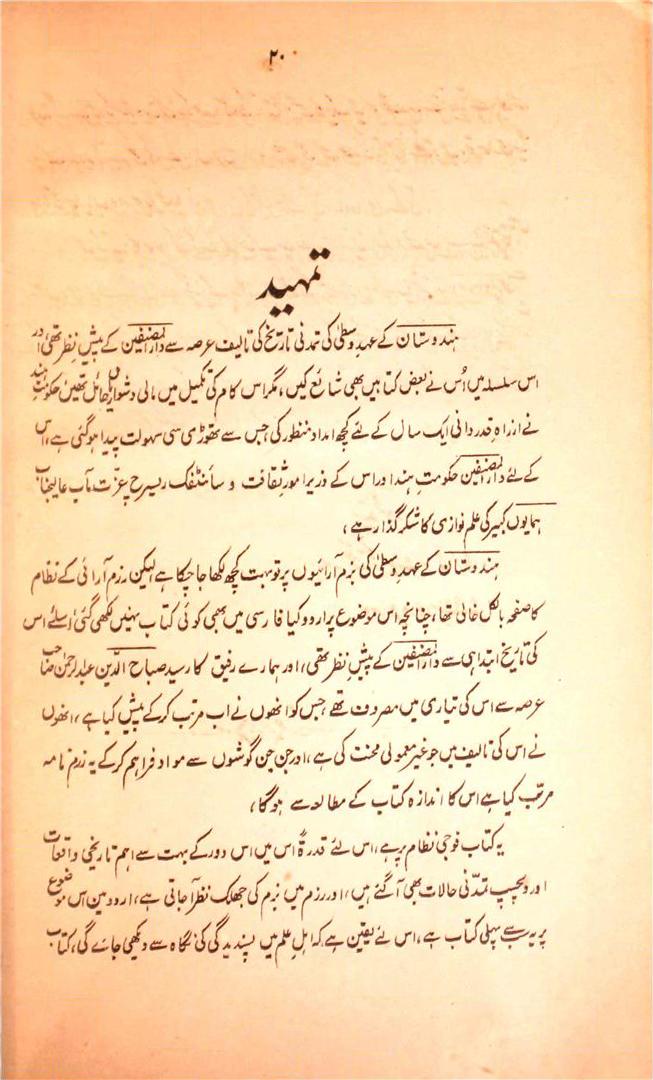 ۲۰
تمہید
ہندوستان کے عہد وسطیٰ کی تمدنی تاریخ کی تالیف عرصہ سے دارالمصنفین کے پیش نظر تھی اور
اس سلسلہ میں اُس نے بعض کتابیں بھی شائع کیں، مگر اس کام کی تکمیل میں مالی دشواریاں حائل تھیں حکومتِ ہند
نے ازراہِ قدردانی ایک سال کے لئے کچھ امداد منظور کی جس سے تھوڑی سی سہولت پیدا ہو گئی ہے، اس
کے لئے دارالمصنفین حکومتِ ہند اور اس کے وزیر امورِ ثقافت و سائنٹفک ریسرچ عزت مآب عالیجناب
ہمایوں کبیر کی علم نوازی کا شکر گذار ہے،
ہندوستان کے عہد وسطیٰ کی بزم آرائیوں پر تو بہت کچھ لکھا جا چکا ہے لیکن رزم آرائی کے نظام
کا صفحہ بالکل خالی تھا، چنانچہ اس موضوع پر اردو کیا فارسی میں بھی کوئی کتاب نہیں لکھی گئی اسلئے اس
کی تاریخ ابتدا ہی سے دارالمصنفین کے پیشِ نظر تھی، اور ہمارے رفیق کار سید صباح الدین عبدالرحمٰن صاحب
عرصہ سے اس کی تیاری میں مصروف تھے جس کو انھوں نے اب مرتب کر کے پیش کیا ہے، انھوں
نے اس کی تالیف میں جو غیر معمولی محنت کی ہے، اور جن جن گوشوں سے مواد فراہم کر کے یہ رزم نامہ
مرتب کیا ہے اس کا اندازہ کتاب کے مطالعہ سے ہو گا،
یہ کتاب فوجی نظام پر ہے، اس لئے قدرۃً اس میں اس دور کے بہت سے اہم تاریخی واقعات
اور دلچسپ تمدّنی حالات بھی آ گئے ہیں، اور رزم میں بزم کی جھلک نظر آ جاتی ہے، اردو میں اس موضوع
پر یہ سب سے پہلی کتاب ہے، اس لئے یقین ہے کہ اہلِ علم میں پسندیدگی کی نگاہ سے دیکھی جائے گی، کتاب